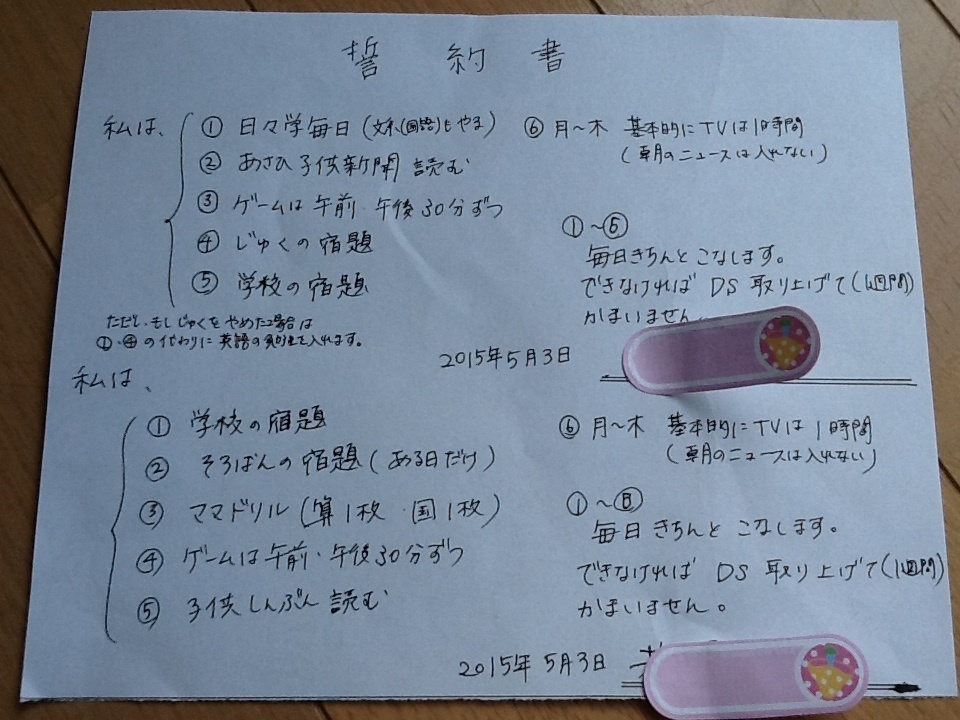 誓約書
私は、
① 日々学毎日(文系(国語)もやる)
② あさひ子供新聞 読む
③ ゲームは午前・午後30分ずつ
④ じゅくの宿題
⑤ 学校の宿題
ただし、もしじゅくをやめた場合は
①・④の代わりに英語の を入れます。
⑥ 月〜木 基本的にTVは1時間
(朝のニュースは入れない)
①〜⑥
毎日きちんとこなします。
できなければ DS 取り上げて(1週間)
かまいません。
2015年5月3日
私は、
① 学校の宿題
② そろばんの宿題(ある日だけ)
③ ママドリル(算1枚・国1枚)
④ ゲームは午前・午後30分ずつ
⑤ 子供しんぶん 読む
⑥ 月〜木 基本的にTVは1時間
(朝のニュースは入れない)
①〜⑥
毎日きちんとこなします。
できなければ DS 取り上げて(1週間)
かまいません。
2015年5月3日